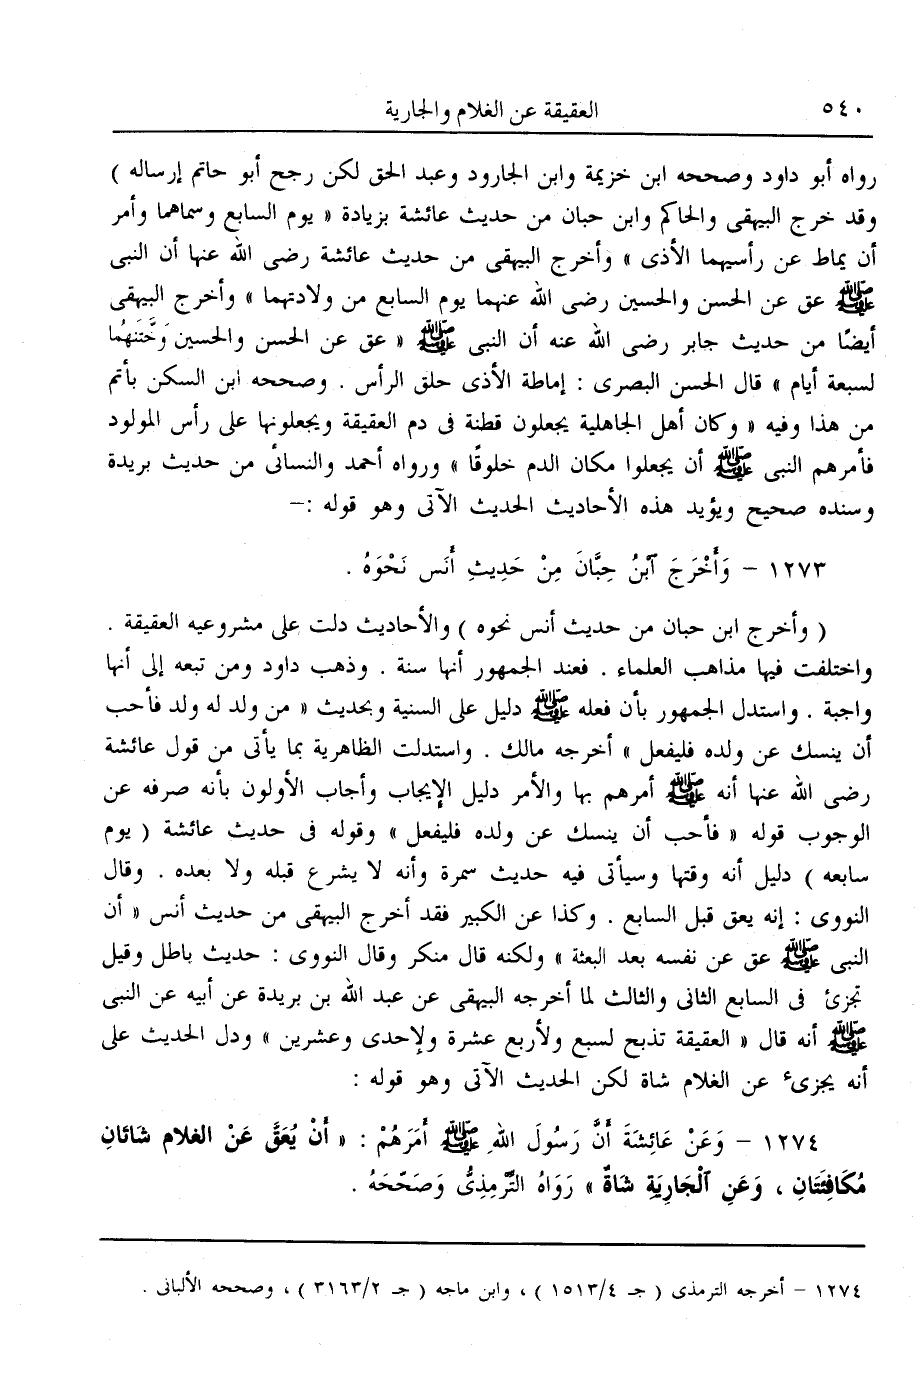 ٥٤٠ العقيقة عن الغلام والجارية
رواه أبو داود وصححه ابن خزيمة وابن الجارود وعبد الحق لكن رجح أبو حاتم إرساله )
وقد خرج البيهقى والحاكم وابن حبان من حديث عائشة بزيادة « يوم السابع وسماهما وأمر
أن يماط عن رأسيهما الأذى » وأخرج البيهقى من حديث عائشة رضى الله عنها أن النبى
ﷺ عق عن الحسن والحسين رضى الله عنهما يوم السابع من ولادتهما » وأخرج البيهقى
أيضًا من حديث جابر رضى الله عنه أن النبى ﷺ « عق عن الحسن والحسين وَخَّتَنَهُما
لسبعة أيام » قال الحسن البصرى : إماطة الأذى حلق الرأس . وصححه ابن السكن بأتم
من هذا وفيه « وكان أهل الجاهلية يجعلون قطنة فى دم العقيقة ويجعلونها على رأس المولود
فأمرهم النبى ﷺ أن يجعلوا مكان الدم خلوقًا » ورواه أحمد والنسائى من حديث بريدة
وسنده صحيح ويؤيد هذه الأحاديث الحديث الآتى وهو قوله :–
١٢٧٣ – وَأَخْرَجَ ٱبْنُ حِبَّانَ مِنْ حَدِيثِ أَنَس نَحْوَهُ .
( وأخرج ابن حبان من حديث أنس نحوه ) والأحاديث دلت على مشروعيه العقيقة .
واختلفت فيها مذاهب العلماء . فعند الجمهور أنها سنة . وذهب داود ومن تبعه إلى أنها
واجبة . واستدل الجمهور بأن فعله ﷺ دليل على السنية وبحديث « من ولد له ولد فأحب
أن ينسك عن ولده فليفعل » أخرجه مالك . واستدلت الظاهرية بما يأتى من قول عائشة
رضى الله عنها أنه ﷺ أمرهم بها والأمر دليل الإيجاب وأجاب الأولون بأنه صرفه عن
الوجوب قوله « فأحب أن ينسك عن ولده فليفعل » وقوله فى حديث عائشة ( يوم
سابعه ) دليل أنه وقتها وسيأتى فيه حديث سمرة وأنه لا يشرع قبله ولا بعده . وقال
النووى : إنه يعق قبل السابع . وكذا عن الكبير فقد أخرج البيهقى من حديث أنس « أن
النبى ﷺ عق عن نفسه بعد البعثة » ولكنه قال منكر وقال النووى : حديث باطل وقيل
تجزئ فى السابع الثانى والثالث لما أخرجه البيهقى عن عبد الله بن بريدة عن أبيه عن النبى
ﷺ أنه قال « العقيقة تذبح لسبع ولأربع عشرة ولإحدى وعشرين » ودل الحديث على
أنه يجزىء عن الغلام شاة لكن الحديث الآتى وهو قوله :
١٢٧٤ – وَعَنْ عَائِشَةَ أَنَّ رَسُولَ اللهِ ﷺ أَمَرَهُمْ : « أَنْ يُعَقَّ عَنْ الغلام شاتَانِ
مُكَافِئَتَانِ ، وَعَنِ ٱلْجَارِيَةِ شاةٌ » رَوَاهُ التِّرْمِذِىُّ وَصَحَّحَهُ .
١٢٧٤ – أخرجه الترمذى ( جـ ١٥١٣/٤ ) ، وابن ماجه ( جـ ٣١٦٣/٢ ) ، وصححه الألبانى .